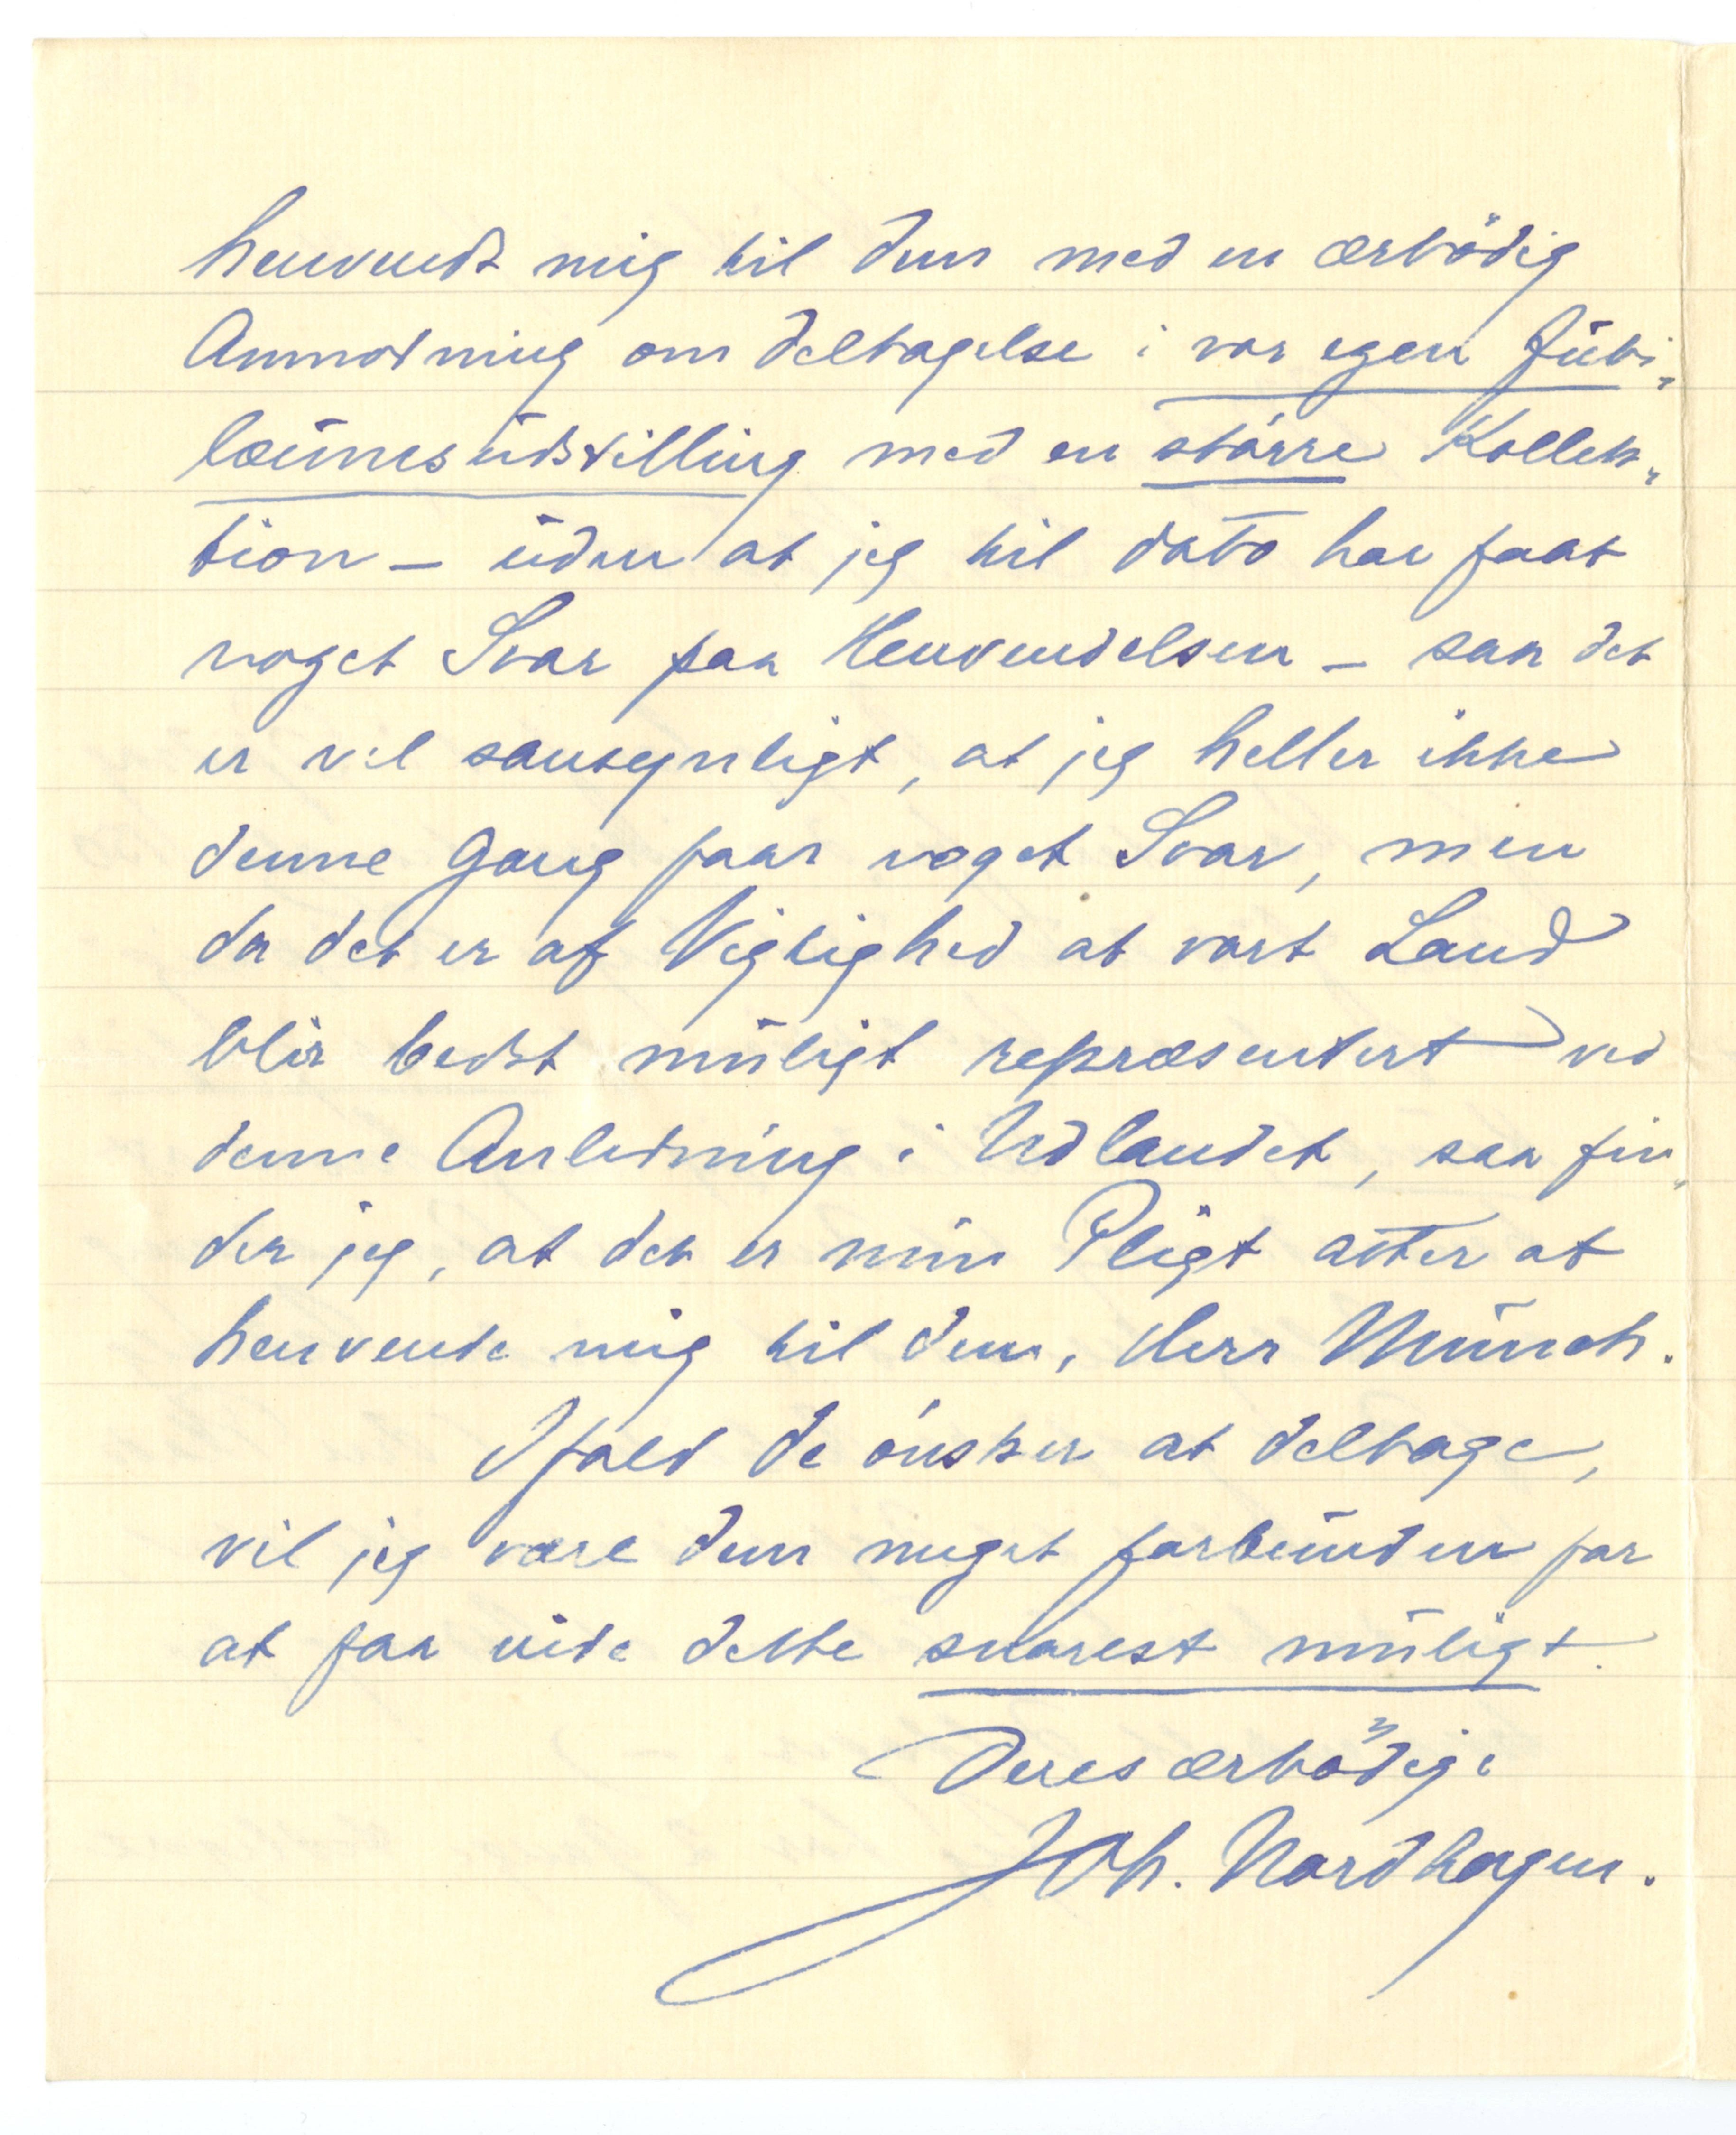 henvendt mig til Dem med en ærbödig
Anmodning om Deltagelse i vor egen Jubi-
læumsudstilling med en större Kollek-
tion – uden at jeg til dato har faat
noget Svar paa Henvendelsen – saa det
er vel sansynligt, at jeg heller ikke
denne Gang faar noget Svar, men
da det er af Vigtighed at vort Land
blir bedst muligt repræsentert ved
denne Anledning i Udlandet, saa fin-
der jeg, at det er min Pligt atter at
henvende mig til Dem, Herr Munch.
Ifald De önsker at deltage,
vil jeg være Dem meget forbunden for
at faa vide dette snarest muligt.
Deres ærbödige
Joh. Nordhagen.